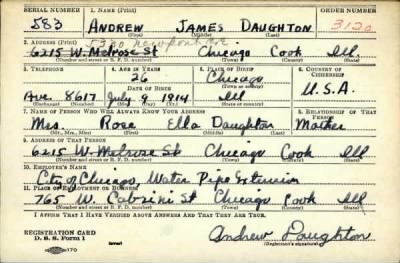 SERIAL NUMBER 1. NAME (Print) ORDER NUMBER
583 ANDREW JAMES DAUGHTON 3120
(First) (Middle) (Last)
5320 Newport Ave
2. ADDRESS (Print)
6215 W. Melrose St Chicago Cook Ill
(Number and street or R. F. D. number) (Town) (County) (State)
3. TELEPHONE 4. AGE IN YEARS 5. PLACE OF BIRTH 6. COUNTRY OF CITIZENSHIP
26 Chicago
DATE OF BIRTH (Town or county)
Ave. 8617 July 9 1914 Ill U.S.A.
(Exchange) (Number) (Mo.) (Day) (Yr.) (State or country)
7. NAME OF PERSON WHO WILL ALWAYS KNOW YOUR ADDRESS 8. RELATIONSHIP OF THAT PERSON
Mrs Rose Ella Daughton Mother
(Mr., Mrs., Miss) (First) (Middle) (Last)
9. ADDRESS OF THAT PERSON
6215 W. Melrose St Chicago Cook Ill
(Number and street or R. F. D. number) (Town) (County) (State)
10. EMPLOYER'S NAME
City of Chicago, Water Pipe Extension
11. PLACE OF EMPLOYMENT OR BUSINESS
765 W. Cabrini St Chicago Cook Ill
(Number and street or R. F. D. number) (Town) (County) (State)
I AFFIRM THAT I HAVE VERIFIED ABOVE ANSWERS AND THAT THEY ARE TRUE.
REGISTRATION CARD
D. S. S. Form 1 (over) Andrew Daughton
(Registrant's signature)